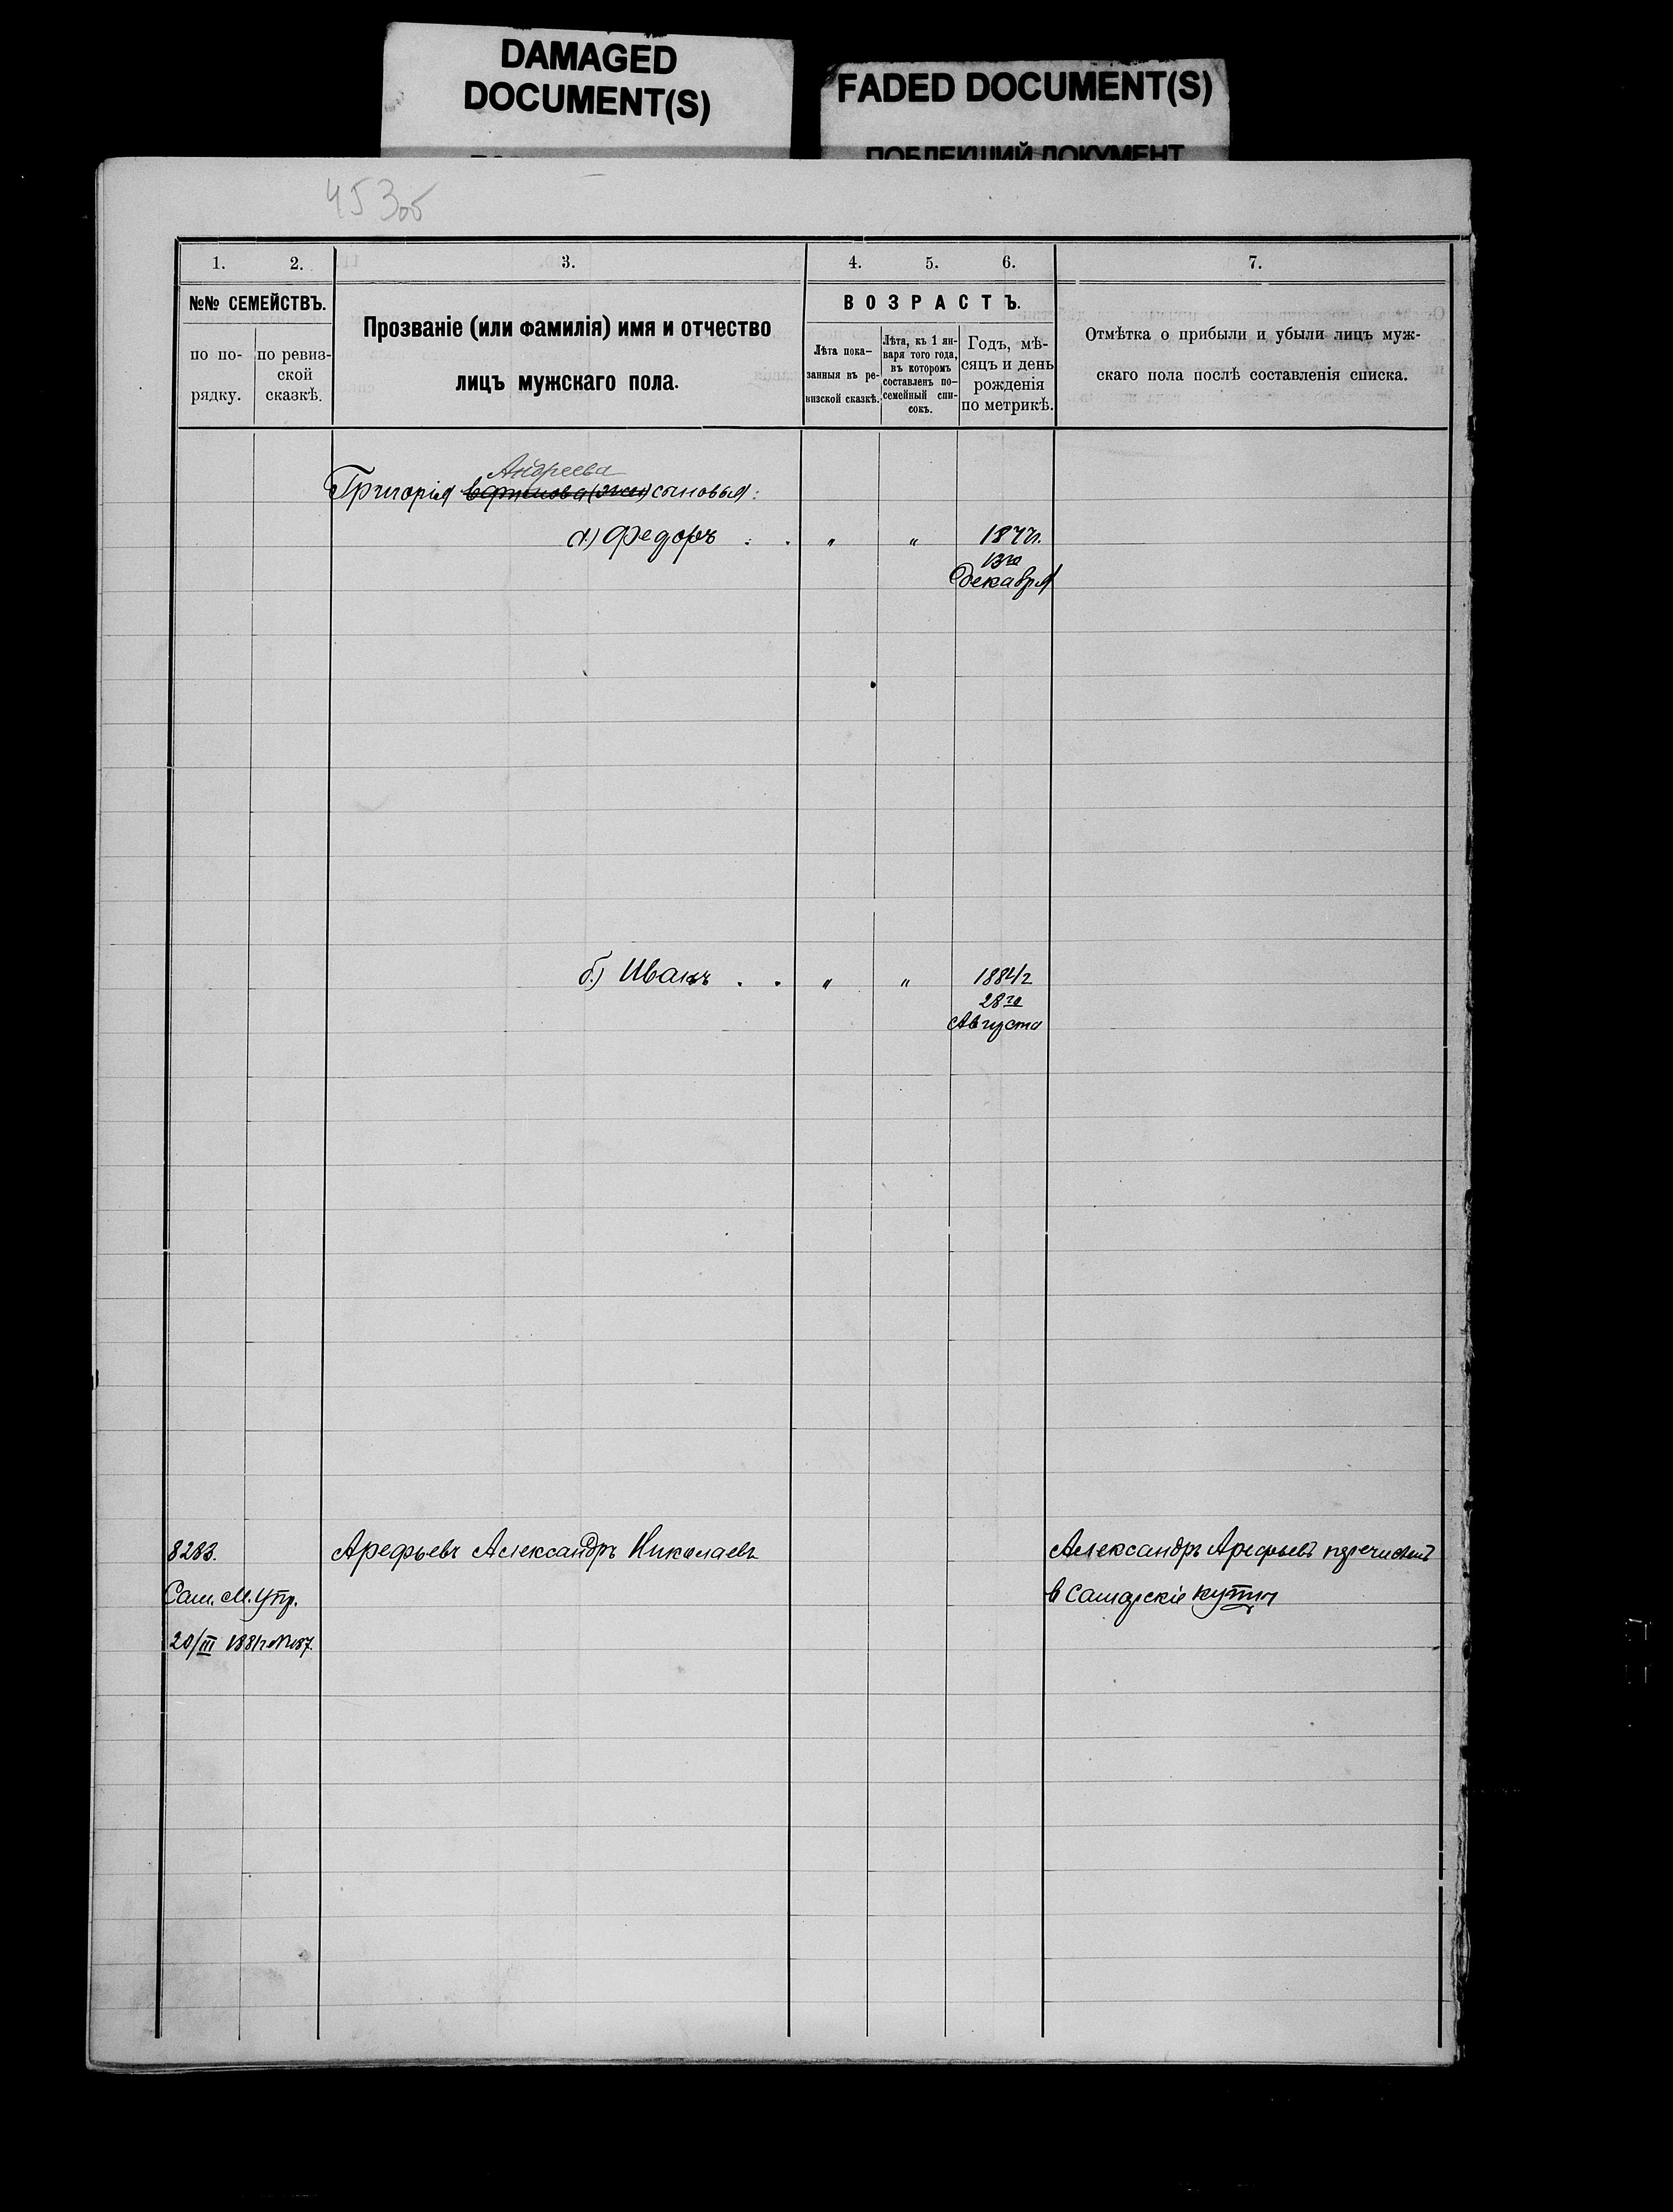 DAMAGED
DOCUMENT(S)
FADED DOCUMENT(S)
ПОБЛЕКШИЙ ДОКУМЕНТ
453об
1. 2. 3. 4. 5. 6. 7.
№№ СЕМЕЙСТВЪ.
по по-
рядку.
по ревиз-
ской
сказкѣ.
Прозваніе (или фамилія) имя и отчество
лицъ мужскаго пола.
ВОЗРАСТЪ.
Лѣта пока-
занныя въ ре-
визской сказкѣ.
Лѣта, къ 1 ян-
варя того года,
въ которомъ
составленъ по-
семейный спи-
сокъ.
Годъ, мѣ-
сяцъ и день
рожденія
по метрикѣ.
Отмѣтка о прибыли и убыли лицъ муж-
скаго пола послѣ составленія списка.
Андреева
Григорія сыновья:
а) Федоръ . . " "
13го
Декабря
б) Иванъ . . " "
28го
Августа
8283. Арефьевъ Александръ Николаевъ Александръ Арефьевъ перечисленъ
Сам. М. Упр. в Самарскіе купцы
20/III 1881г №187.